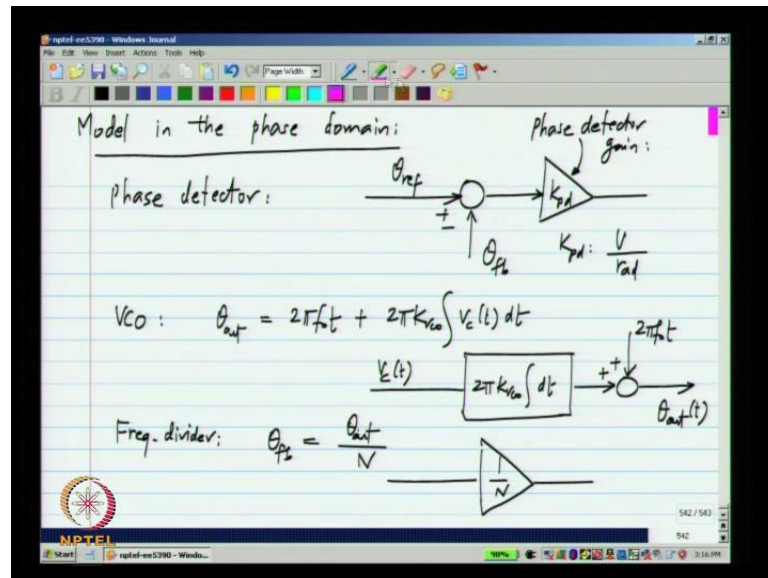 nptel-ee5390 - Windows Journal
File Edit View Insert Actions Tools Help
Page Width
Model in the phase domain:
phase detector gain:
phase detector:
θref
+
−
Kpd
θfb
Kpd: V/rad
VCO: θout = 2πfot + 2πKvco ∫ Vc(t) dt
2πfot
Vc(t)
2πKvco ∫ dt
+
+
θout(t)
Freq. divider: θfb = θout/N
1/N
542 / 543
542
NPTEL
Start
nptel-ee5390 - Windo...
98%
3:16 PM